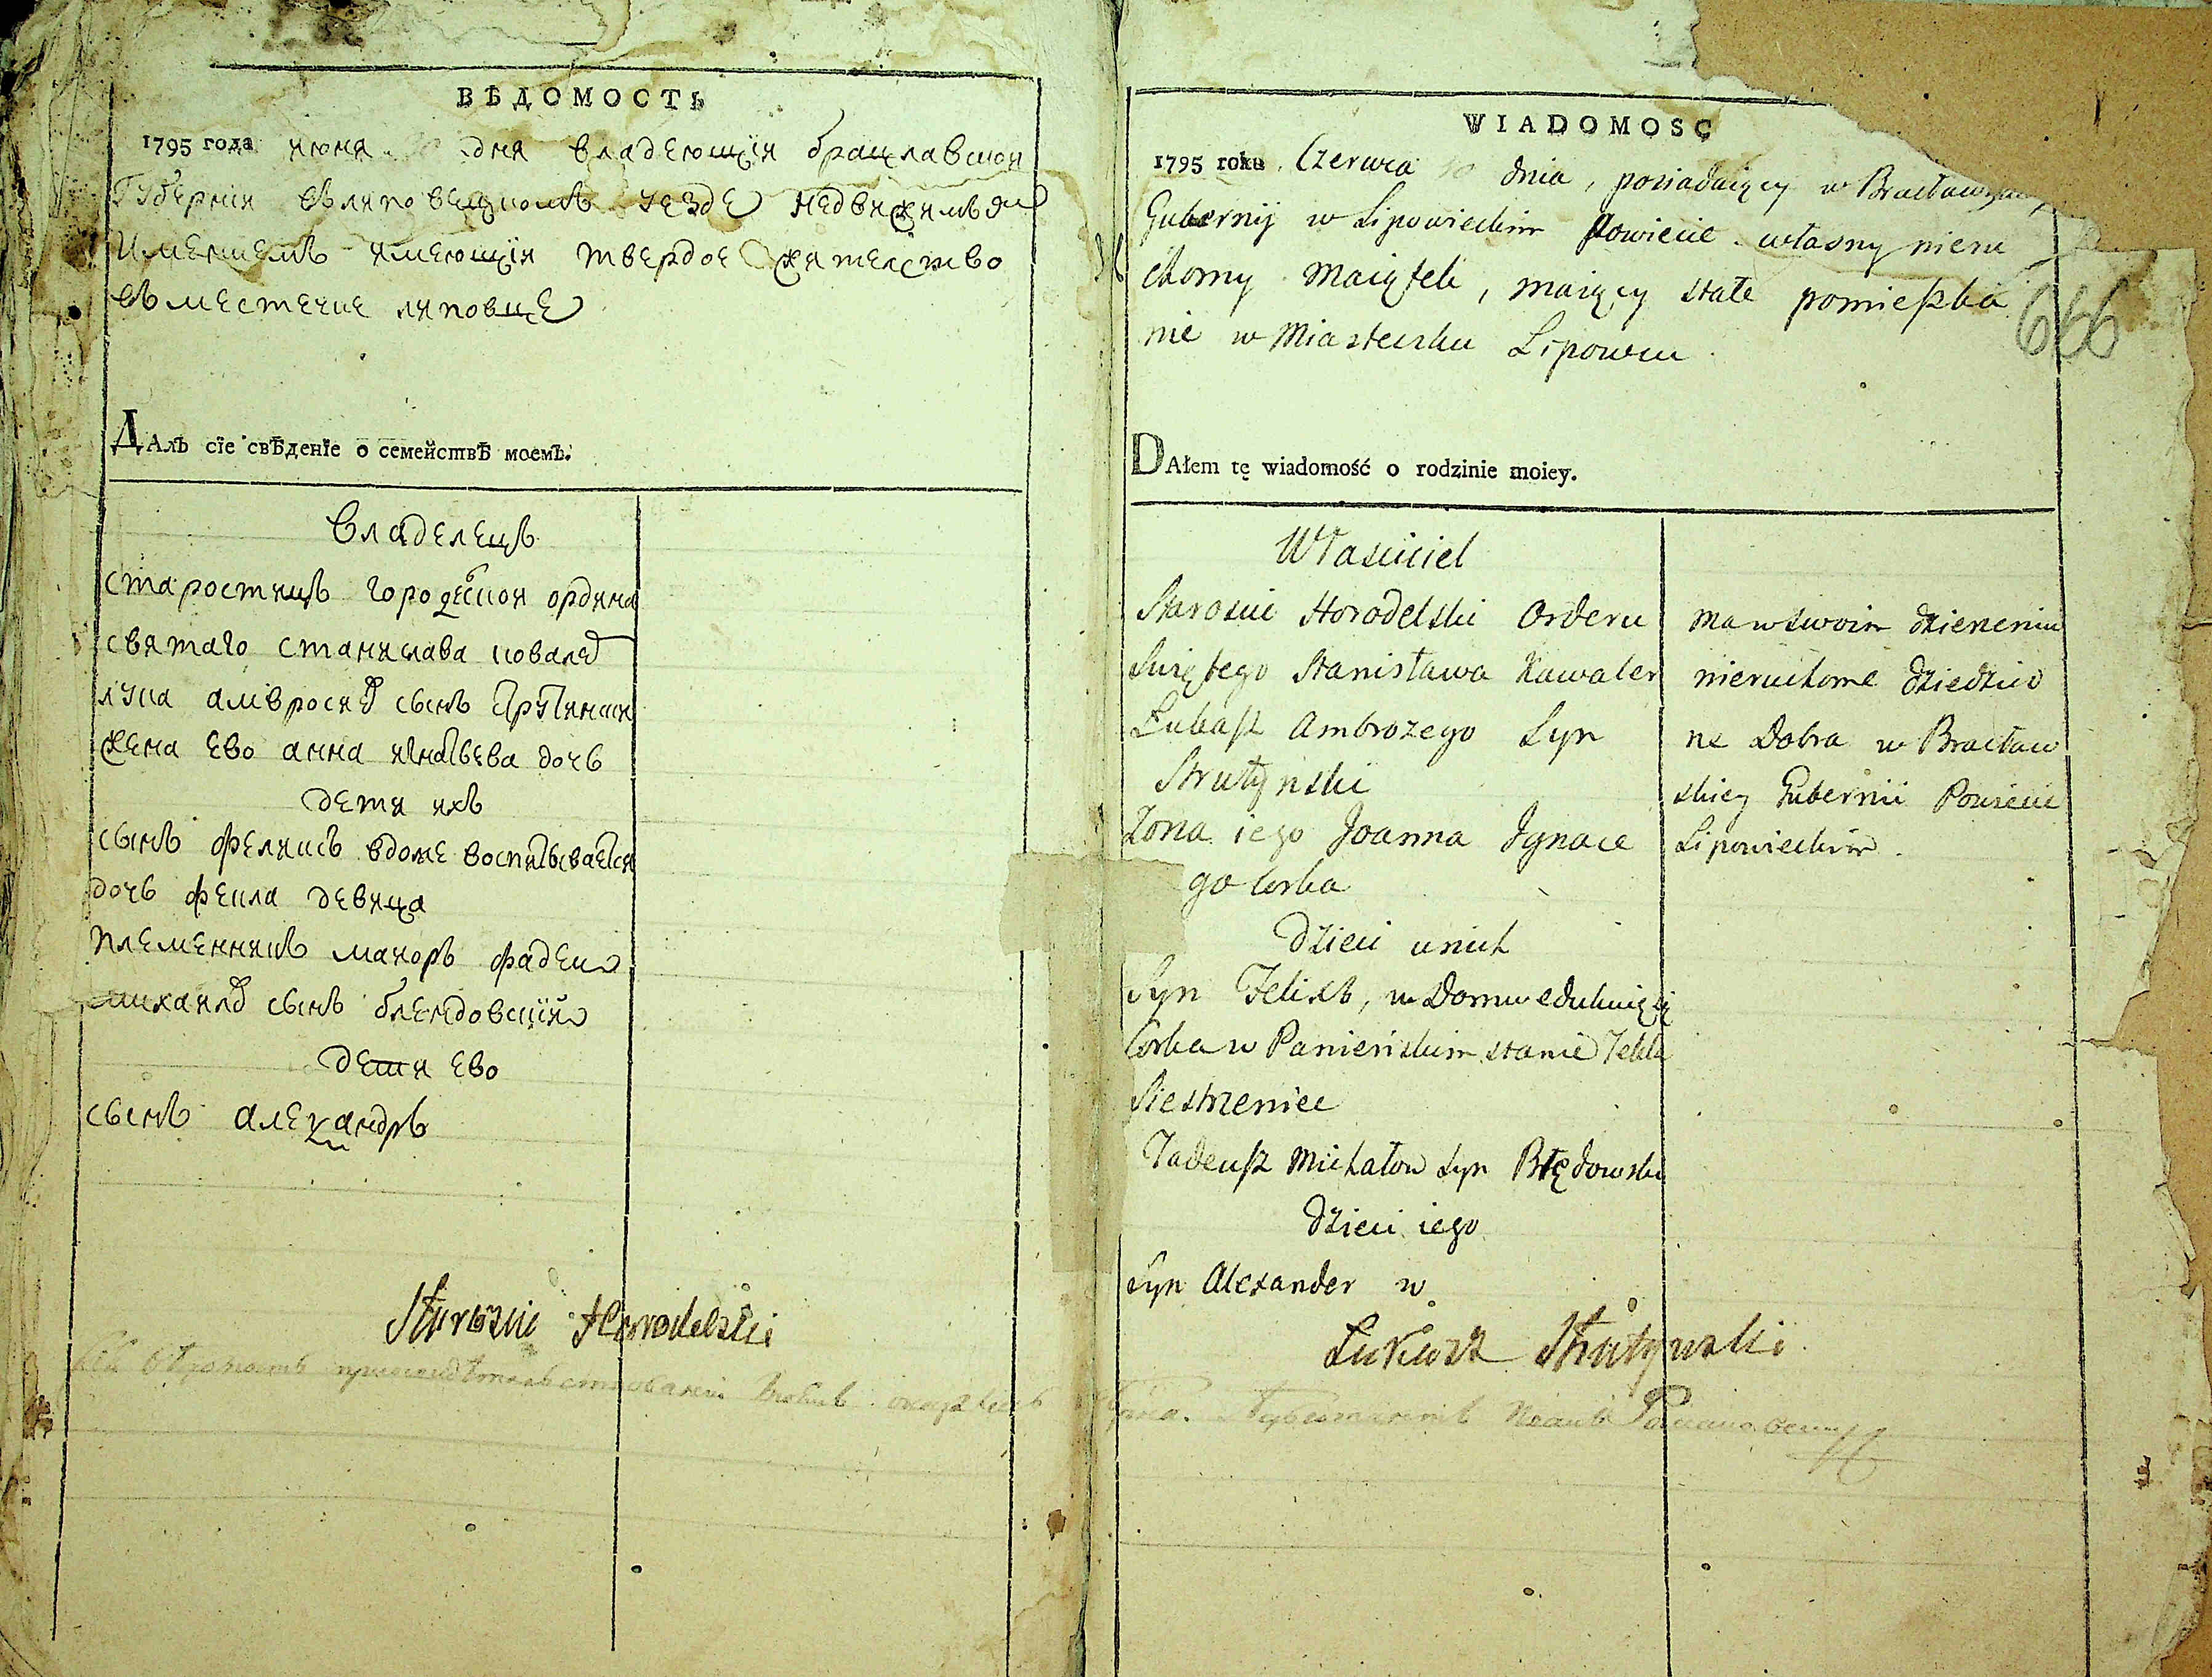 ВѢДОМОСТЬ
1795 года июня дня владеющiи брацлавской
Губернiи въ липовецкомъ уезде недвижимым
имениемъ имеющiи твердое жителство
въ местечке липовце
Далъ сїе свѣденїе о семействѣ моемъ.
Владелецъ
старостицъ городелской ордина
святаго станислава ковалер
лука амвросиев сынъ струтински
жена ево анна игнатьева дочь
дети ихъ
сынъ феликсъ вдоме воспитывается
дочь фекла девица
племенникъ маиоръ фадей
михаилов сынъ блендовскiй
дети ево
сынъ алеѯандръ
Starościc Horodelski
WIADOMOSC
1795 roku Czerwca 10 dnia, posiadaiący w Bracławskiey
Gubernij w Lipowieckim Powiecie własny nieru
chomy Maiątek, maiący stałe pomieszka
nie w Miasteczku Lipowcu
656
DAłem tę wiadomość o rodzinie moiey.
Właściciel
Starościc Horodelski Orderu
Swiętego Stanisława Kawaler
Łukasz Ambrożego Syn
Strutyński
Żona iego Joanna Ignace
go Corka
Dzieci u nich
Syn Felix, w Domu edukuiący
Corka w Panieńskim stanie Tekla
Siestrzeniec
Tadeusz Michałow Syn Błędowski
Dzieci iego
Syn Alexander
ma w swoim dzierzeniu
nieruchome dziedzicz
ne Dobra w Bracław
skiey Gubernii Powiecie
Lipowieckim.
Łukasz Strutynski